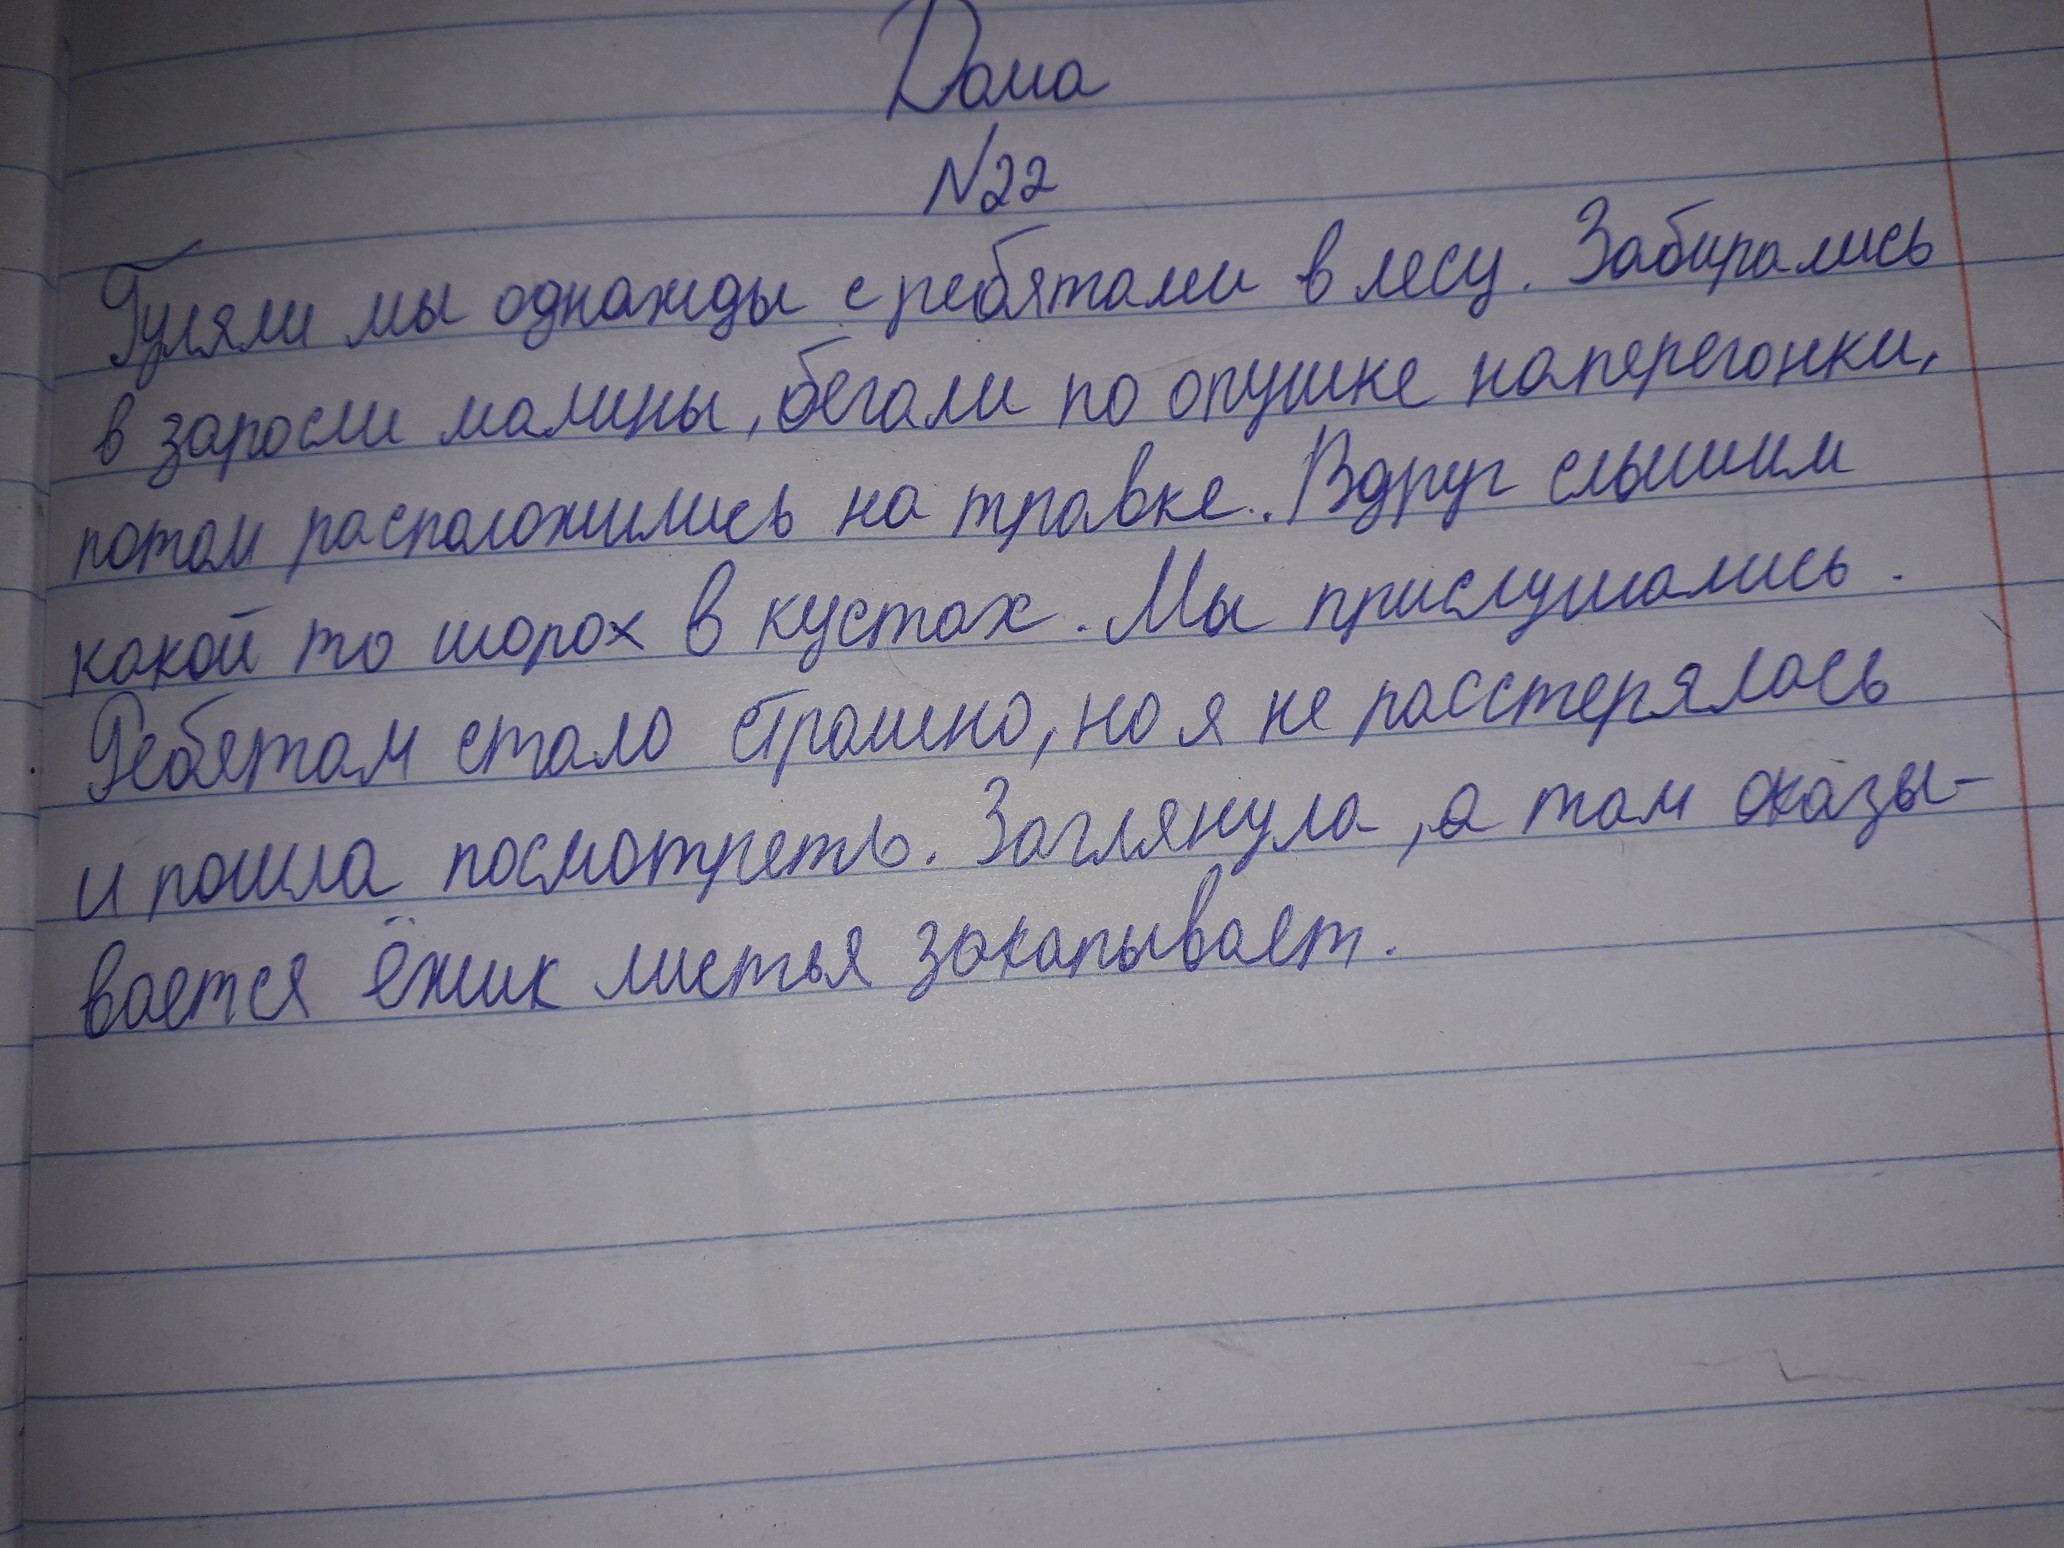 Дома
N22
Гуляли мы однажды с ребятами в лесу. Забирались
в заросли малины, бегали по опушке наперегонки,
потом расположились на травке. Вдруг слышим
какой то шорох в кустах. Мы прислушались.
Ребятам стало страшно, но я не расстерялась
и пошла посмотреть. Заглянула, а там оказы-
вается ёжик листья закапывает.